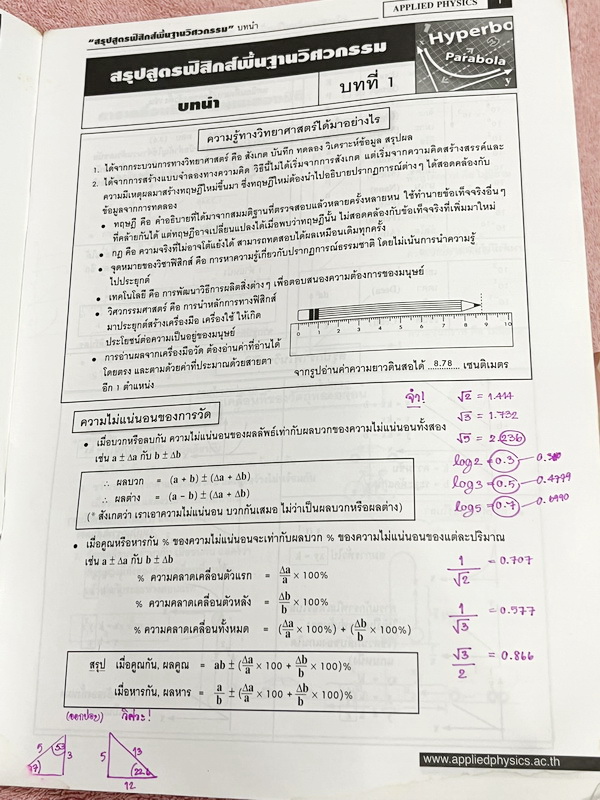 "สรุปสูตรฟิสิกส์พื้นฐานวิศวกรรม" บทนำ
APPLIED PHYSICS 1
สรุปสูตรฟิสิกส์พื้นฐานวิศวกรรม
บทนำ
บทที่ 1
Hyperbo
Parabola
x
y
ความรู้ทางวิทยาศาสตร์ได้มาอย่างไร
1. ได้จากกระบวนการทางวิทยาศาสตร์ คือ สังเกต บันทึก ทดลอง วิเคราะห์ข้อมูล สรุปผล
2. ได้จากการสร้างแบบจำลองทางความคิด วิธีนี้ไม่ได้เริ่มจากการสังเกต แต่เริ่มจากความคิดสร้างสรรค์และ
ความมีเหตุผลมาสร้างทฤษฎีใหม่ขึ้นมา ซึ่งทฤษฎีใหม่ต้องนำไปอธิบายปรากฏการณ์ต่างๆ ได้สอดคล้องกับ
ข้อมูลจากการทดลอง
• ทฤษฎี คือ คำอธิบายที่ได้มาจากสมมติฐานที่ตรวจสอบแล้วหลายครั้งหลายหน ใช้ทำนายข้อเท็จจริงอื่นๆ
ที่คล้ายกันได้ แต่ทฤษฎีอาจเปลี่ยนแปลงได้เมื่อพบว่าทฤษฎีนั้น ไม่สอดคล้องกับข้อเท็จจริงที่เพิ่มมาใหม่
• กฎ คือ ความจริงที่ไม่อาจโต้แย้งได้ สามารถทดสอบได้ผลเหมือนเดิมทุกครั้ง
• จุดหมายของวิชาฟิสิกส์ คือ การหาความรู้เกี่ยวกับปรากฏการณ์ธรรมชาติ โดยไม่เน้นการนำความรู้
ไปประยุกต์
• เทคโนโลยี คือ การพัฒนาวิธีการผลิตสิ่งต่างๆ เพื่อตอบสนองความต้องการของมนุษย์
• วิศวกรรมศาสตร์ คือ การนำหลักการทางฟิสิกส์
มาประยุกต์สร้างเครื่องมือ เครื่องใช้ ให้เกิด
ประโยชน์ต่อความเป็นอยู่ของมนุษย์
0 1 2 3 4 5 6 7 8 9 10
• การอ่านผลจากเครื่องมือวัด ต้องอ่านค่าที่อ่านได้
โดยตรง และตามด้วยค่าที่ประมาณด้วยสายตา
อีก 1 ตำแหน่ง
จากรูปอ่านค่าความยาวดินสอได้ 8.78 เซนติเมตร
จำ!
√2 = 1.414
√3 = 1.732
√5 = 2.236
log2 = 0.3
log3 = 0.5 0.4779
log5 = 0.7 0.6990
1/√2 = 0.707
1/√3 = 0.577
√3/2 = 0.866
ความไม่แน่นอนของการวัด
• เมื่อบวกหรือลบกัน ความไม่แน่นอนของผลลัพธ์เท่ากับผลบวกของความไม่แน่นอนทั้งสอง
เช่น a ± Δa กับ b ± Δb
∴ ผลบวก = (a + b) ± (Δa + Δb)
∴ ผลต่าง = (a − b) ± (Δa + Δb)
(* สังเกตว่า เราเอาความไม่แน่นอน บวกกันเสมอ ไม่ว่าเป็นผลบวกหรือผลต่าง)
• เมื่อคูณหรือหารกัน % ของความไม่แน่นอนจะเท่ากับผลบวก % ของความไม่แน่นอนของแต่ละปริมาณ
เช่น a ± Δa กับ b ± Δb
% ความคลาดเคลื่อนตัวแรก = Δa/a × 100%
% ความคลาดเคลื่อนตัวหลัง = Δb/b × 100%
% ความคลาดเคลื่อนทั้งหมด = (Δa/a × 100%) + (Δb/b × 100%)
สรุป เมื่อคูณกัน, ผลคูณ = ab ± (Δa/a × 100 + Δb/b × 100)%
เมื่อหารกัน, ผลหาร = a/b ± (Δa/a × 100 + Δb/b × 100)%
(ออกบ่อย) วิศวะ!
5 53 3
37
5 13
22.6
12
www.appliedphysics.ac.th